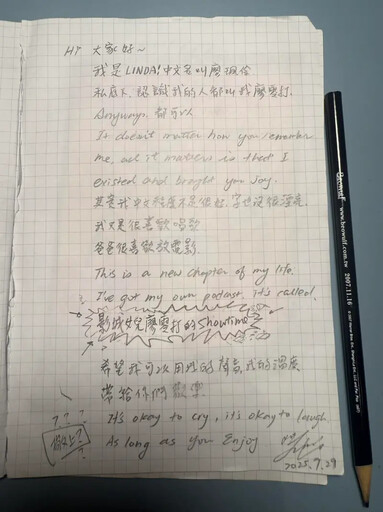 Hi 大家好~
我是LINDA!中文名叫廖珮伶
私底下,認識我的人都叫我廖要打.
Anyways, 都可以
It doesn't matter how you remember
me, all it matters is that I
existed and brought you Joy.
其實我中文程度不是很好,字也沒很漂亮
我只是很喜歡唱歌
爸爸很喜歡放電影.
This is a new chapter of my life.
I've got my own podcast, it's called,
影城女兒廖要打的Showtime
希望我可以用我的聲音,我的溫度
帶給你們歡樂
It's okay to cry, it's okay to laugh.
???
As long as you Enjoy
2025.9.29
Beowulf
www.beowulf.com.tw
2007.11.16